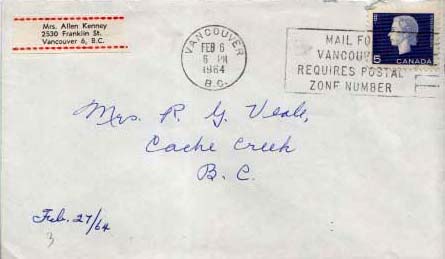 Mrs. Allen Kenney
2530 Franklin St.
Vancouver 6, B.C.
VANCOUVER
FEB 6
6 PM
1964
B.C.
MAIL FO
VANCOUV
REQUIRES POSTAL
ZONE NUMBER
5 CANADA
Mrs. R. G. Veale,
Cache Creek
B. C.
Feb. 27/64
3